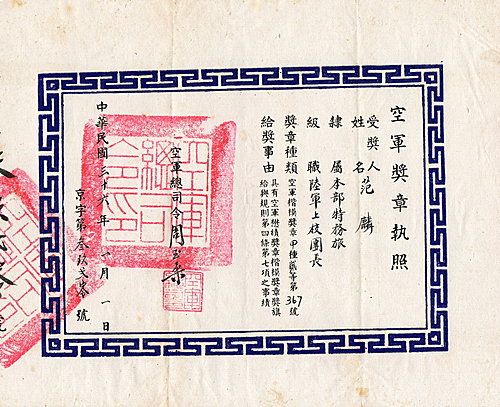 空軍獎章執照
受獎人
姓名 范麟
隸屬 本部特務旅
級職 陸軍上校團長
獎章種類 空軍楷模獎章甲種貳等第367號
給獎事由 具有空軍懋績獎章楷模獎章獎旗給與規則第四條第七項之事績
空軍總司令周至柔
中華民國三十六年一月一日
京字第叁玖
號